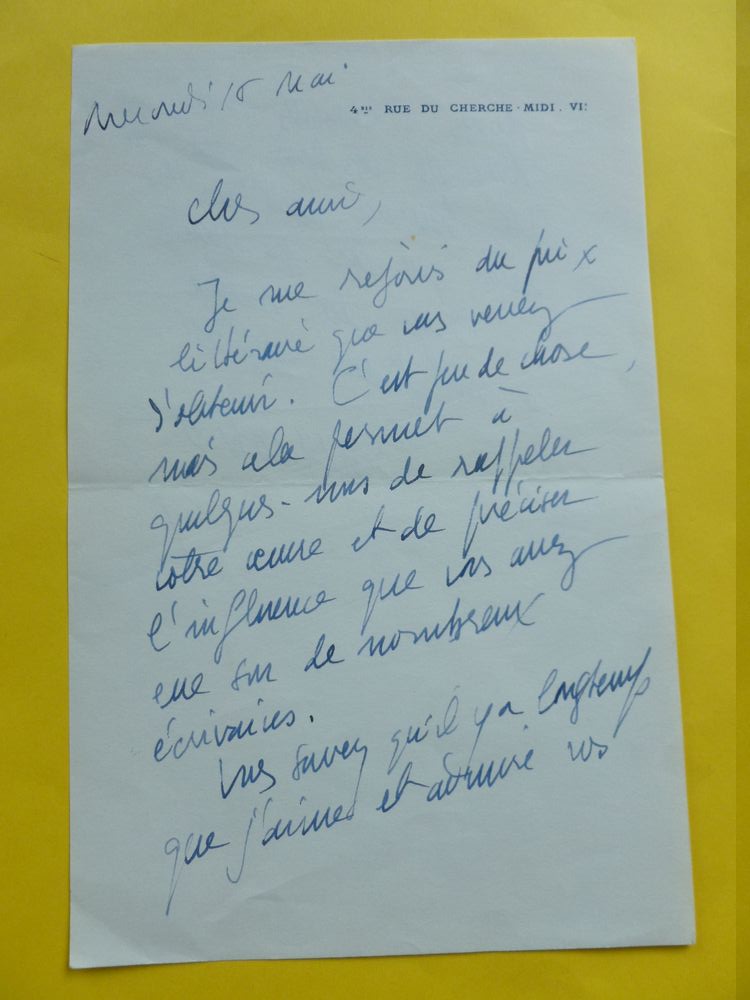 Mercredi 18 Mai
4BIS RUE DU CHERCHE-MIDI. VIE
Chers amis,
Je me réjouis du prix
littéraire que vous venez
d'obtenir. C'est peu de chose,
mais cela permet à
quelques-uns de rappeler
votre œuvre et de préciser
l'influence que vous avez
eue sur de nombreux
écrivains.
Vous savez qu'il y a longtemps
que j'aime et admire vos